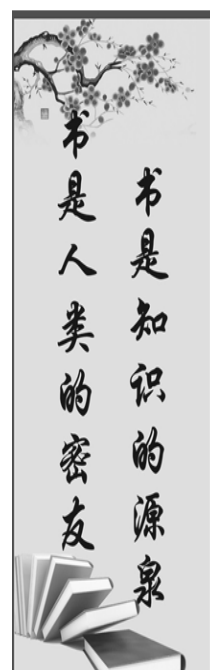 书是知识的源泉
书是人类的密友